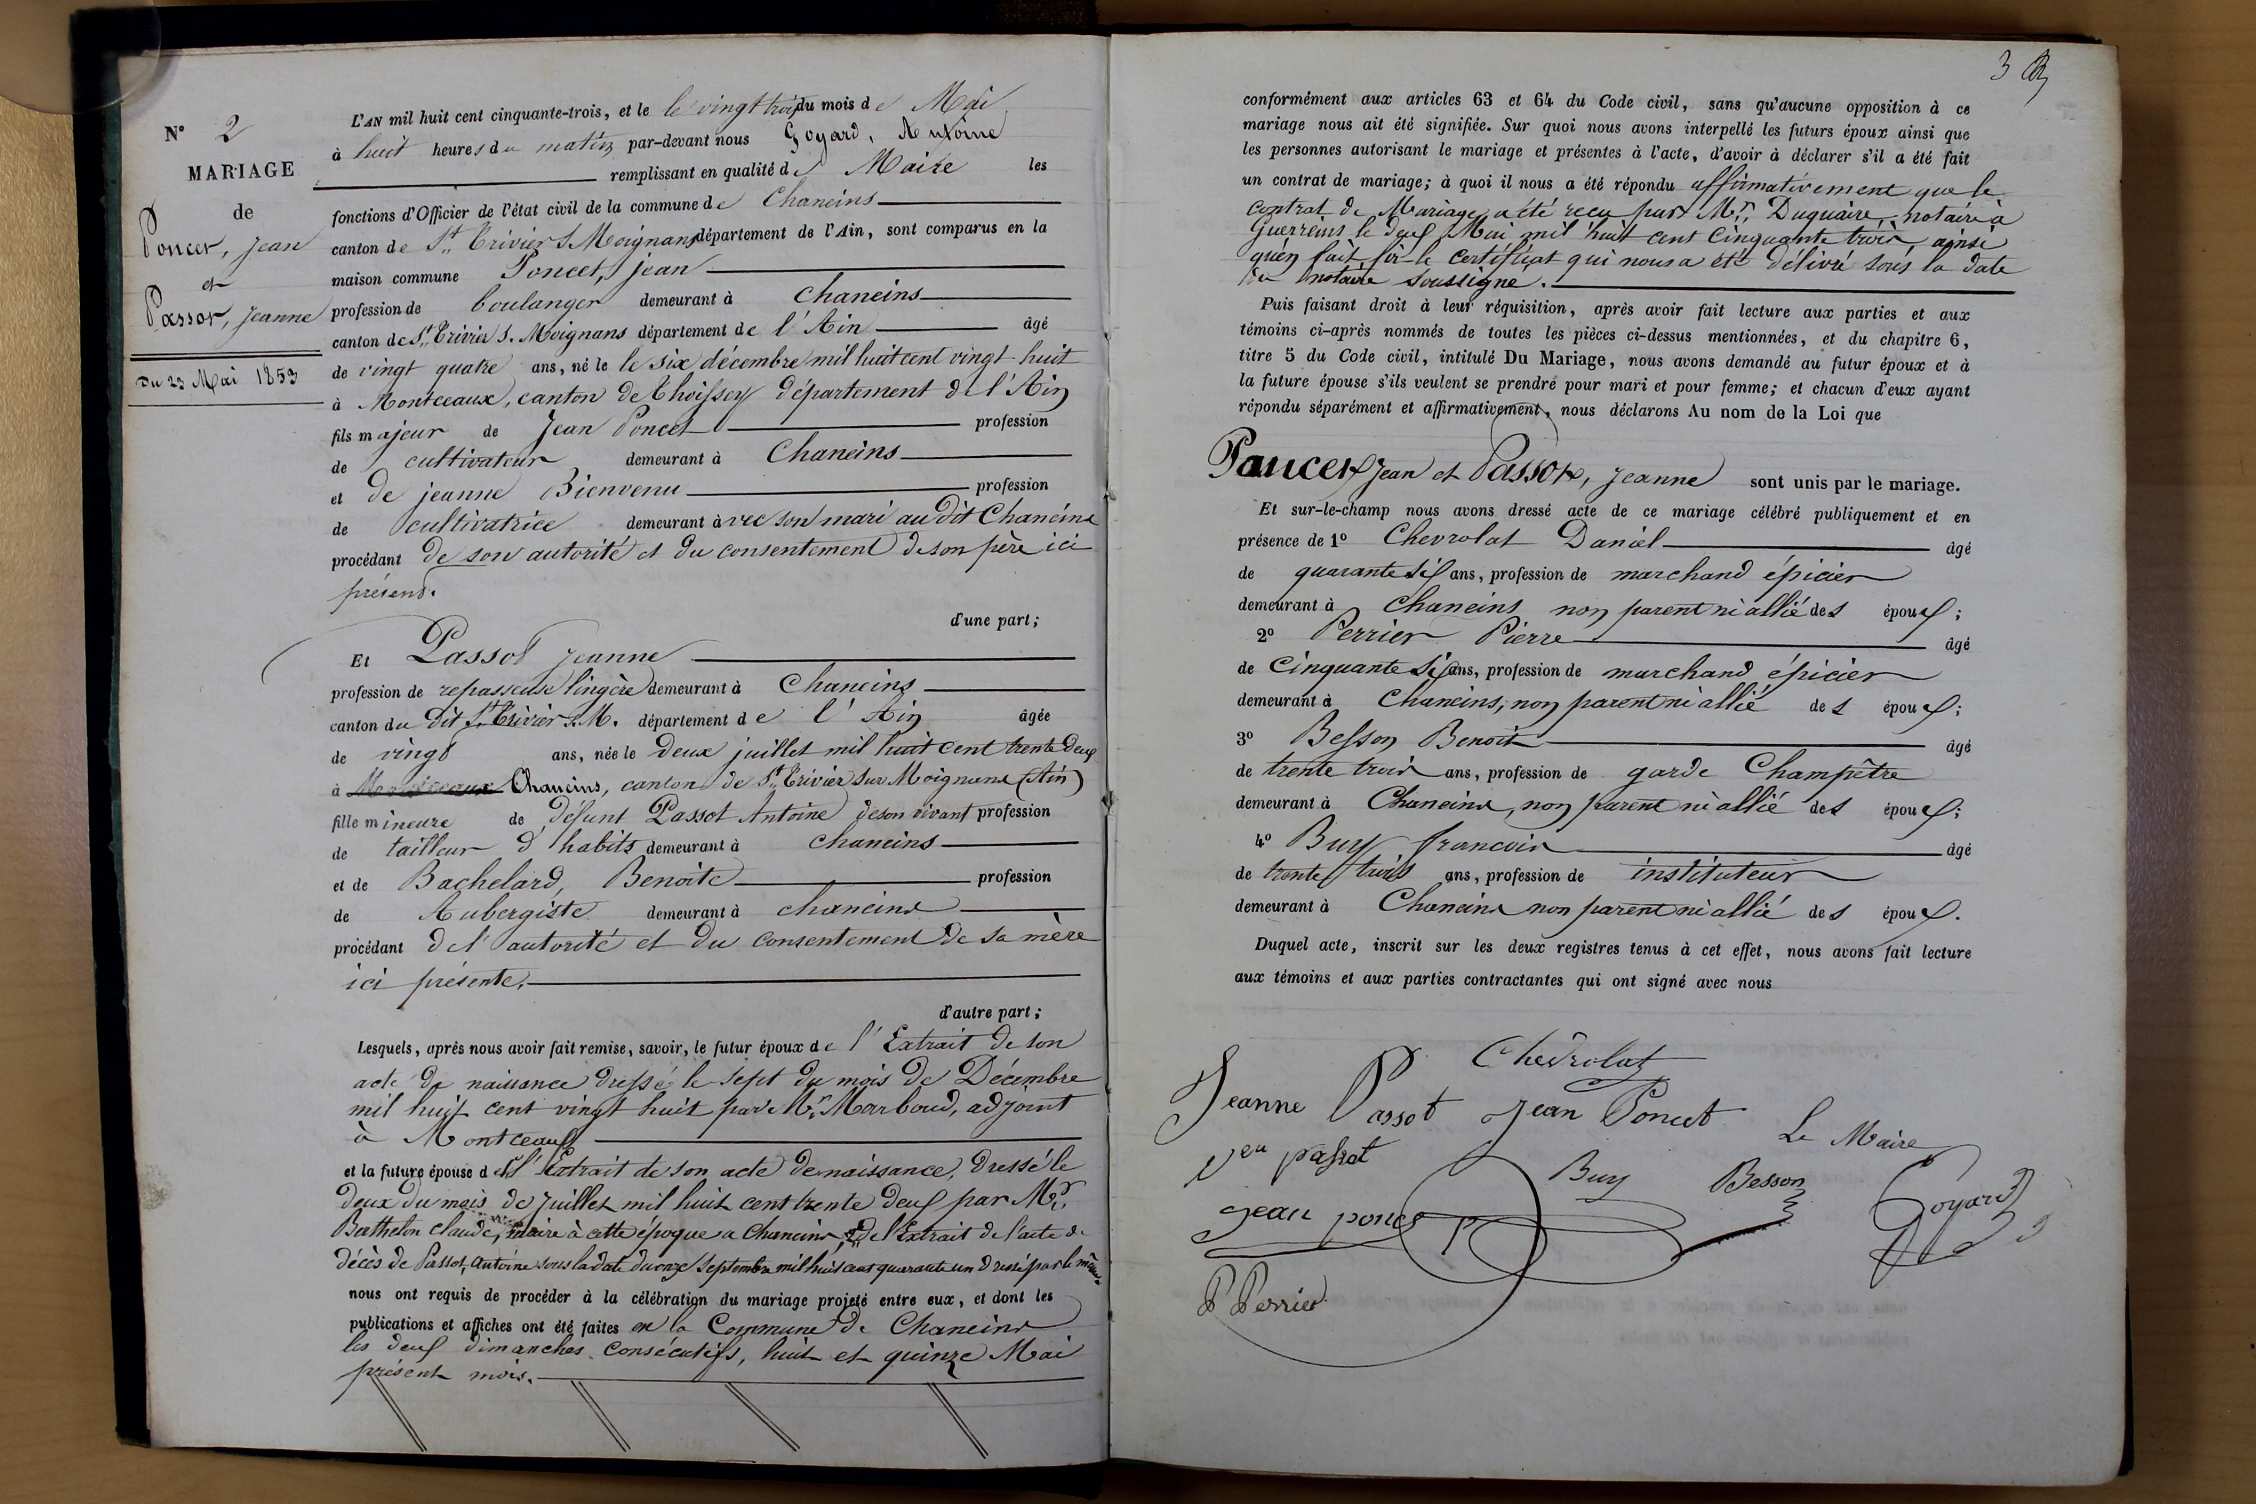 N° 2
MARIAGE
de
Poncet, Jean
et
Passot, Jeanne
Du 23 Mai 1853
L'AN mil huit cent cinquante-trois, et le le vingt trois du mois de Mai
à huit heures du matin par-devant nous Goyard, Antoine
remplissant en qualité de Maire les
fonctions d'Officier de l'état civil de la commune de Chaneins
canton de St Trivier S. Moignans département de l'Ain, sont comparus en la
maison commune Poncet, jean
profession de boulanger demeurant à Chaneins
canton de St Trivier S. Moignans département de l'Ain âgé
de vingt quatre ans, né le le six décembre mil huit cent vingt huit
à Montceaux, canton de Thoissey département de l'Ain
fils majeur de Jean Poncet profession
de cultivateur demeurant à Chaneins
et de jeanne Bienvenu profession
de cultivatrice demeurant avec son mari au dit Chaneins
procédant de son autorité et du consentement de son père ici
présent.
d'une part;
Et Passot Jeanne
profession de repasseuse lingère demeurant à Chaneins
canton du dit St Trivier S. M. département de l'Ain âgée
de vingt ans, née le deux juillet mil huit cent trente deux
à Montceaux Chaneins, canton de St Trivier sur Moignans (Ain)
fille mineure de défunt Passot Antoine de son vivant profession
de tailleur d'habits demeurant à chaneins
et de Bachelard, Benoite profession
de Aubergiste demeurant à chaneins
procédant de l'autorité et du consentement de sa mère
ici présente.
d'autre part;
Lesquels, après nous avoir fait remise, savoir, le futur époux de l'Extrait de son
acte de naissance dressé le sept du mois de Décembre
mil huit cent vingt huit par Mr Marboud, adjoint
à Montceaux
et la future épouse de l'Extrait de son acte de naissance, dressé le
deux du mois de juillet mil huit cent trente deux par Mr
Bathelon claude, maire à cette époque a Chaneins, & de l'Extrait de l'acte de
décès de Passot, Antoine sous la date du onze septembre mil huit cent quarante un dressé par le même
nous ont requis de procéder à la célébration du mariage projeté entre eux, et dont les
publications et affiches ont été faites en la Commune de Chaneins
les deux dimanches consécutifs, huit et quinze Mai
présent mois.
3
conformément aux articles 63 et 64 du Code civil, sans qu'aucune opposition à ce
mariage nous ait été signifiée. Sur quoi nous avons interpellé les futurs époux ainsi que
les personnes autorisant le mariage et présentes à l'acte, d'avoir à déclarer s'il a été fait
un contrat de mariage; à quoi il nous a été répondu affirmativement que le
contrat de Mariage a été reçu par Mr Duquaire, notaire à
Guerreins le deux Mai mil huit cent Cinquante trois, ainsi
qu'en fait foi le certificat qui nous a été délivré sous la date
du notaire soussigné.
Puis faisant droit à leur réquisition, après avoir fait lecture aux parties et aux
témoins ci-après nommés de toutes les pièces ci-dessus mentionnées, et du chapitre 6,
titre 5 du Code civil, intitulé Du Mariage, nous avons demandé au futur époux et à
la future épouse s'ils veulent se prendre pour mari et pour femme; et chacun d'eux ayant
répondu séparément et affirmativement, nous déclarons Au nom de la Loi que
Poncet Jean et Passot, Jeanne sont unis par le mariage.
Et sur-le-champ nous avons dressé acte de ce mariage célébré publiquement et en
présence de 1° Chevrolat Daniel âgé
de quarante six ans, profession de marchand épicier
demeurant à Chaneins non parent ni allié des époux;
2° Perrier Pierre âgé
de Cinquante six ans, profession de marchand épicier
demeurant à Chaneins, non parent ni allié des époux;
3° Besson Benoit âgé
de trente trois ans, profession de garde Champêtre
demeurant à Chaneins, non parent ni allié des époux;
4° Buy francois âgé
de trente trois ans, profession de instituteur
demeurant à Chaneins non parent ni allié des époux.
Duquel acte, inscrit sur les deux registres tenus à cet effet, nous avons fait lecture
aux témoins et aux parties contractantes qui ont signé avec nous
Chevrolat
Jeanne Passot Jean Poncet
Le Maire
veu passot
Buy Besson Goyard
jean poncet
P Perrier